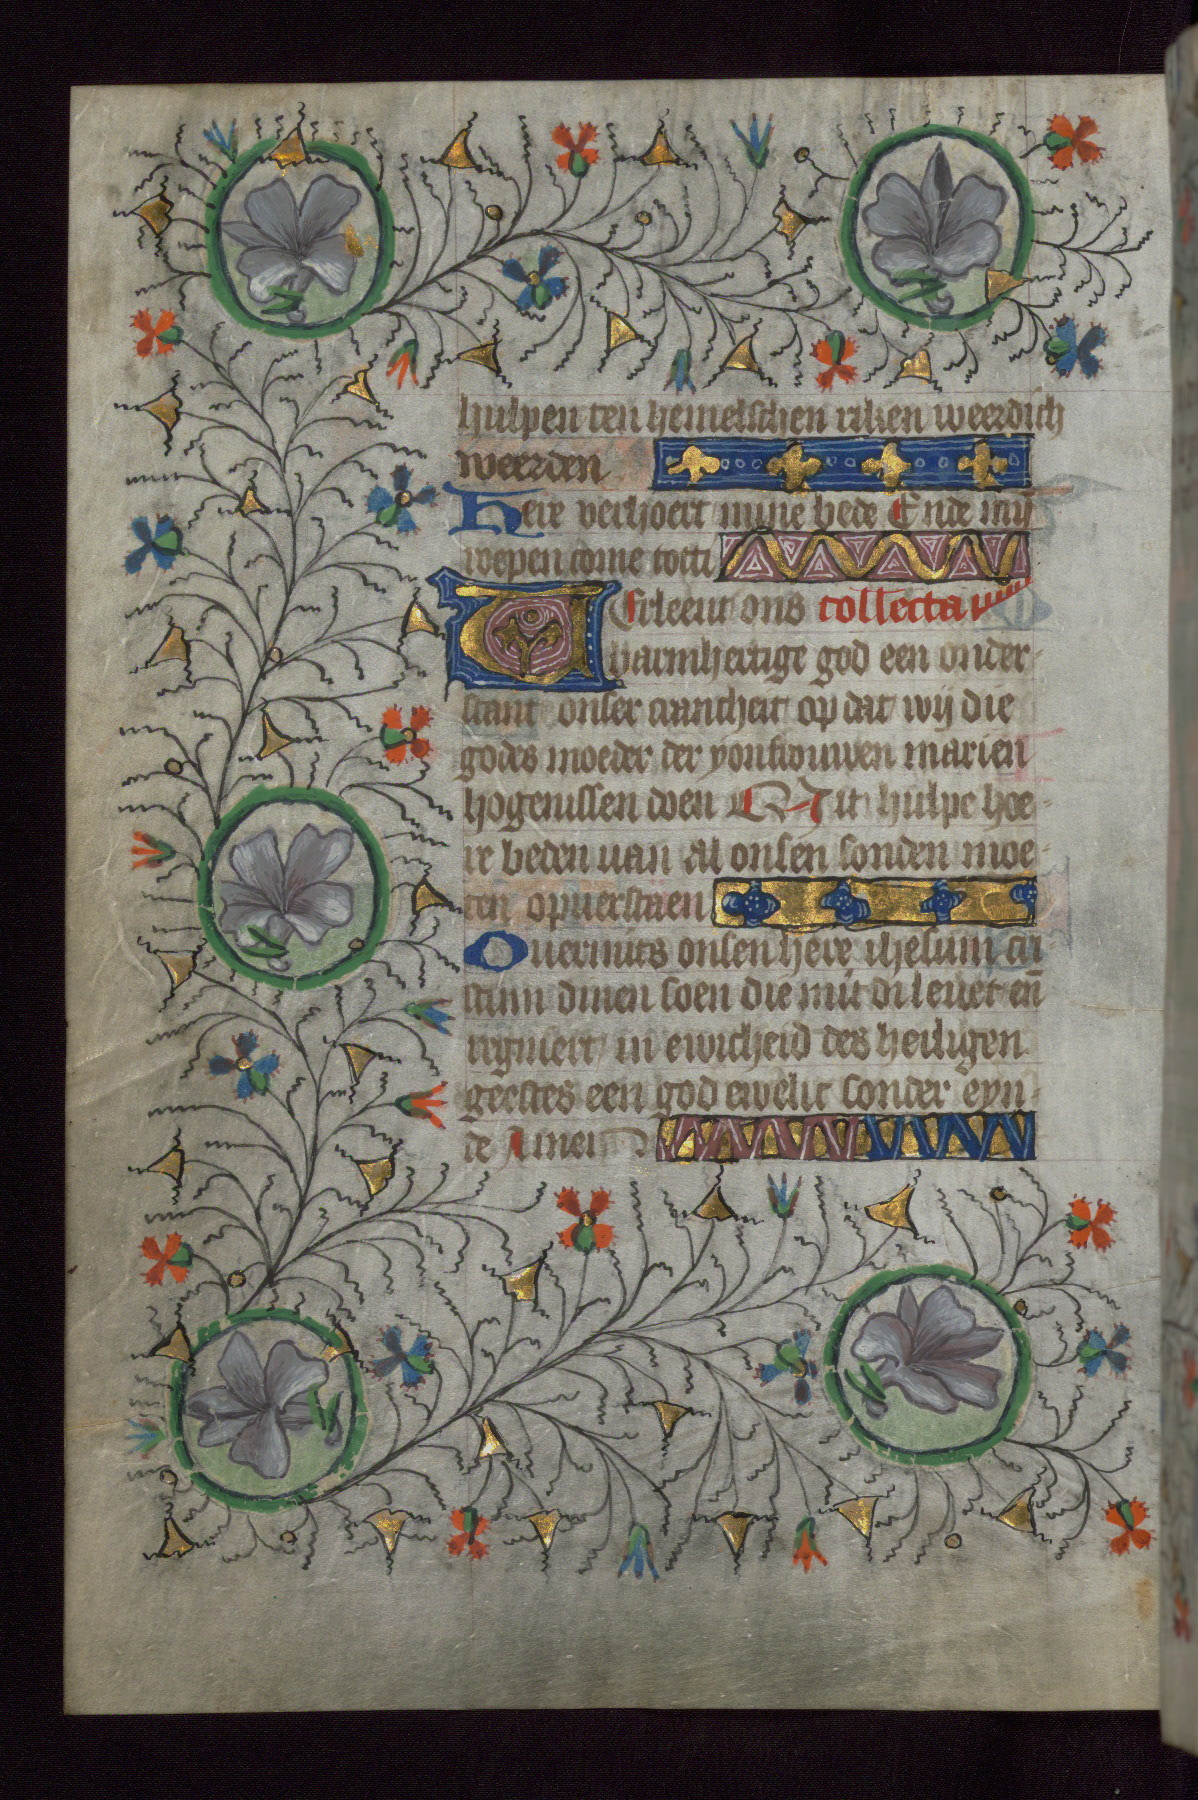 hulpen ten hemelschen riken weerdich
weerden
Here verhoert mijne bede Ende mij
wepen come totti
Verleent ons collecta
barmhertige god een onder-
stant onser crancheit op dat wij die
godes moeder der yonfrouwen marien
hogenissen doen Mit hulpe hoe-
re beden uan al onsen sonden moe-
ten opuerstaen
Ouermits onsen here ihesum cri
stum dinen soen die mit di leuet eñ
regniert in ewicheid des heiligen
geestes een god ewelic sonder eyn-
de Amen